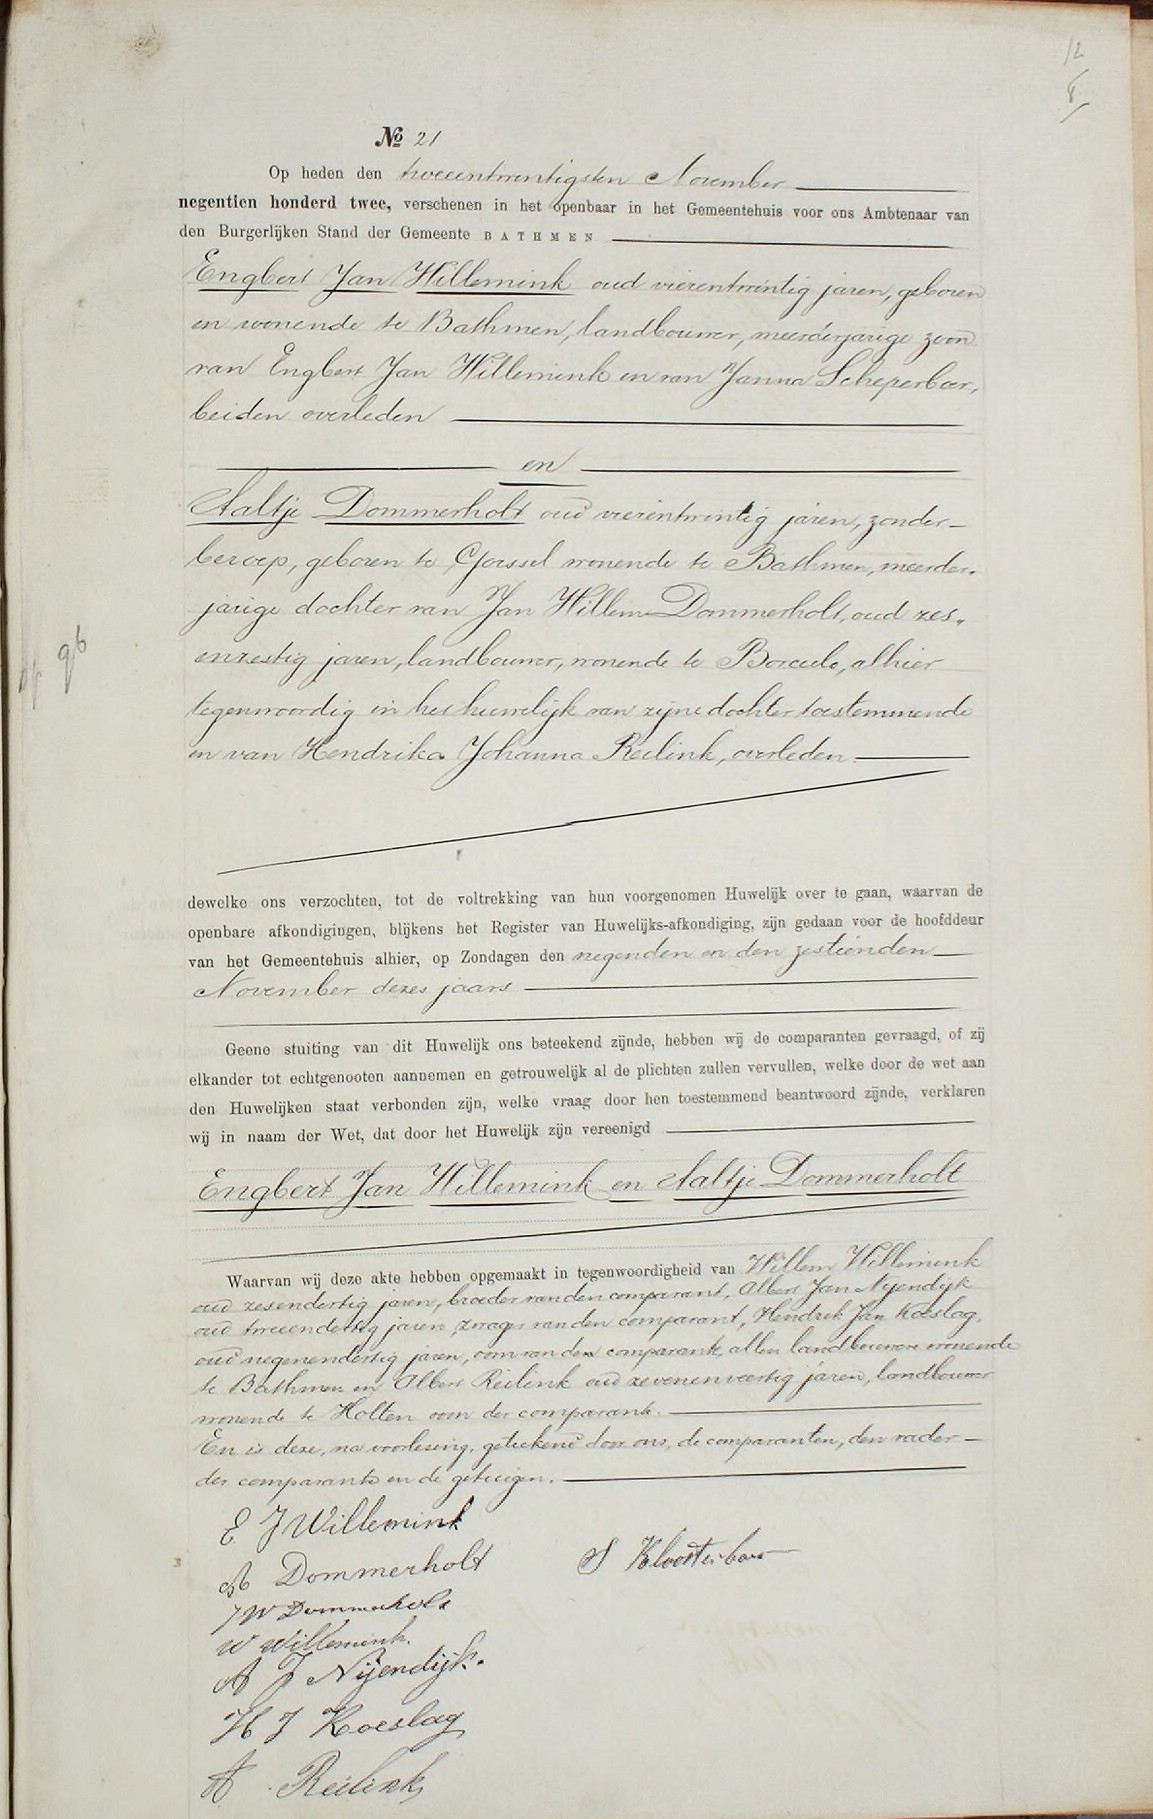 12
8
№ 21
Op heden den tweeentwintigsten November
negentien honderd twee, verschenen in het openbaar in het Gemeentehuis voor ons Ambtenaar van
den Burgerlijken Stand der Gemeente BATHMEN
Engbert Jan Willemink oud vierentwintig jaren, geboren
en wonende te Bathmen, landbouwer, meerderjarige zoon
van Engbert Jan Willemink en van Janna Scheperboer,
beiden overleden
en
Aaltje Dommerholt oud vierentwintig jaren, zonder
beroep, geboren te Gorssel wonende te Bathmen, meerder-
jarige dochter van Jan Willem Dommerholt, oud zes-
enzestig jaren, landbouwer, wonende te Borculo, alhier
tegenwoordig in het huwelijk van zijne dochter toestemmende
en van Hendrika Johanna Reilink, overleden
96
dewelke ons verzochten, tot de voltrekking van hun voorgenomen Huwelijk over te gaan, waarvan de
openbare afkondigingen, blijkens het Register van Huwelijks-afkondiging, zijn gedaan voor de hoofddeur
van het Gemeentehuis alhier, op Zondagen den negenden en den zestienden
November dezes jaars
Geene stuiting van dit Huwelijk ons beteekend zijnde, hebben wij de comparanten gevraagd, of zij
elkander tot echtgenooten aannemen en getrouwelijk al de plichten zullen vervullen, welke door de wet aan
den Huwelijken staat verbonden zijn, welke vraag door hen toestemmend beantwoord zijnde, verklaren
wij in naam der Wet, dat door het Huwelijk zijn vereenigd
Engbert Jan Willemink en Aaltje Dommerholt
Waarvan wij deze akte hebben opgemaakt in tegenwoordigheid van Willem Willemink
oud zesendertig jaren, broeder van den comparant, Albert Jan Nijendijk
oud tweeendertig jaren zwager van den comparant, Hendrik Jan Koeslag,
oud negenendertig jaren, oom van den comparant, allen landbouwers wonende
te Bathmen en Albert Reilink oud zevenenveertig jaren, landbouwer
wonende te Holten oom der comparante.
En is deze, na voorlezing, geteekend door ons, de comparanten, den vader
der comparante en de getuigen.
E J Willemink
A Dommerholt
S Kloosterboer
J W Dommerholt
W Willemink.
A J Nijendijk.
H J Koeslag
A. Reilink